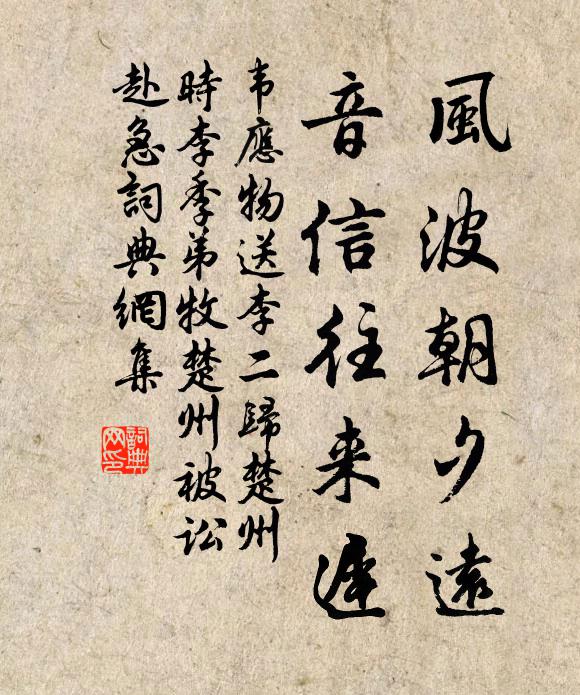 風波朝夕遠
音信往来遲
韦應物送李二歸楚州
時李季弟牧楚州被讼
赴急詞典網集
詞典网印